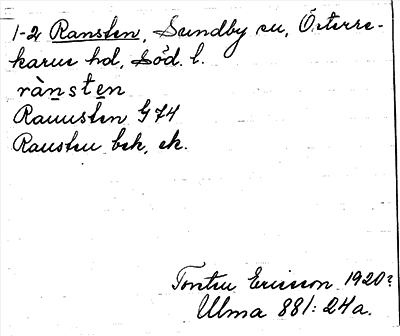 1-2 Ransten, Sundby sn, Österre-
karne hd, Söd. l.
rànsten
Rannsten G 74
Ransten bek, ek.
Torsten Ericsson 1920?
Ulma 881:24a.